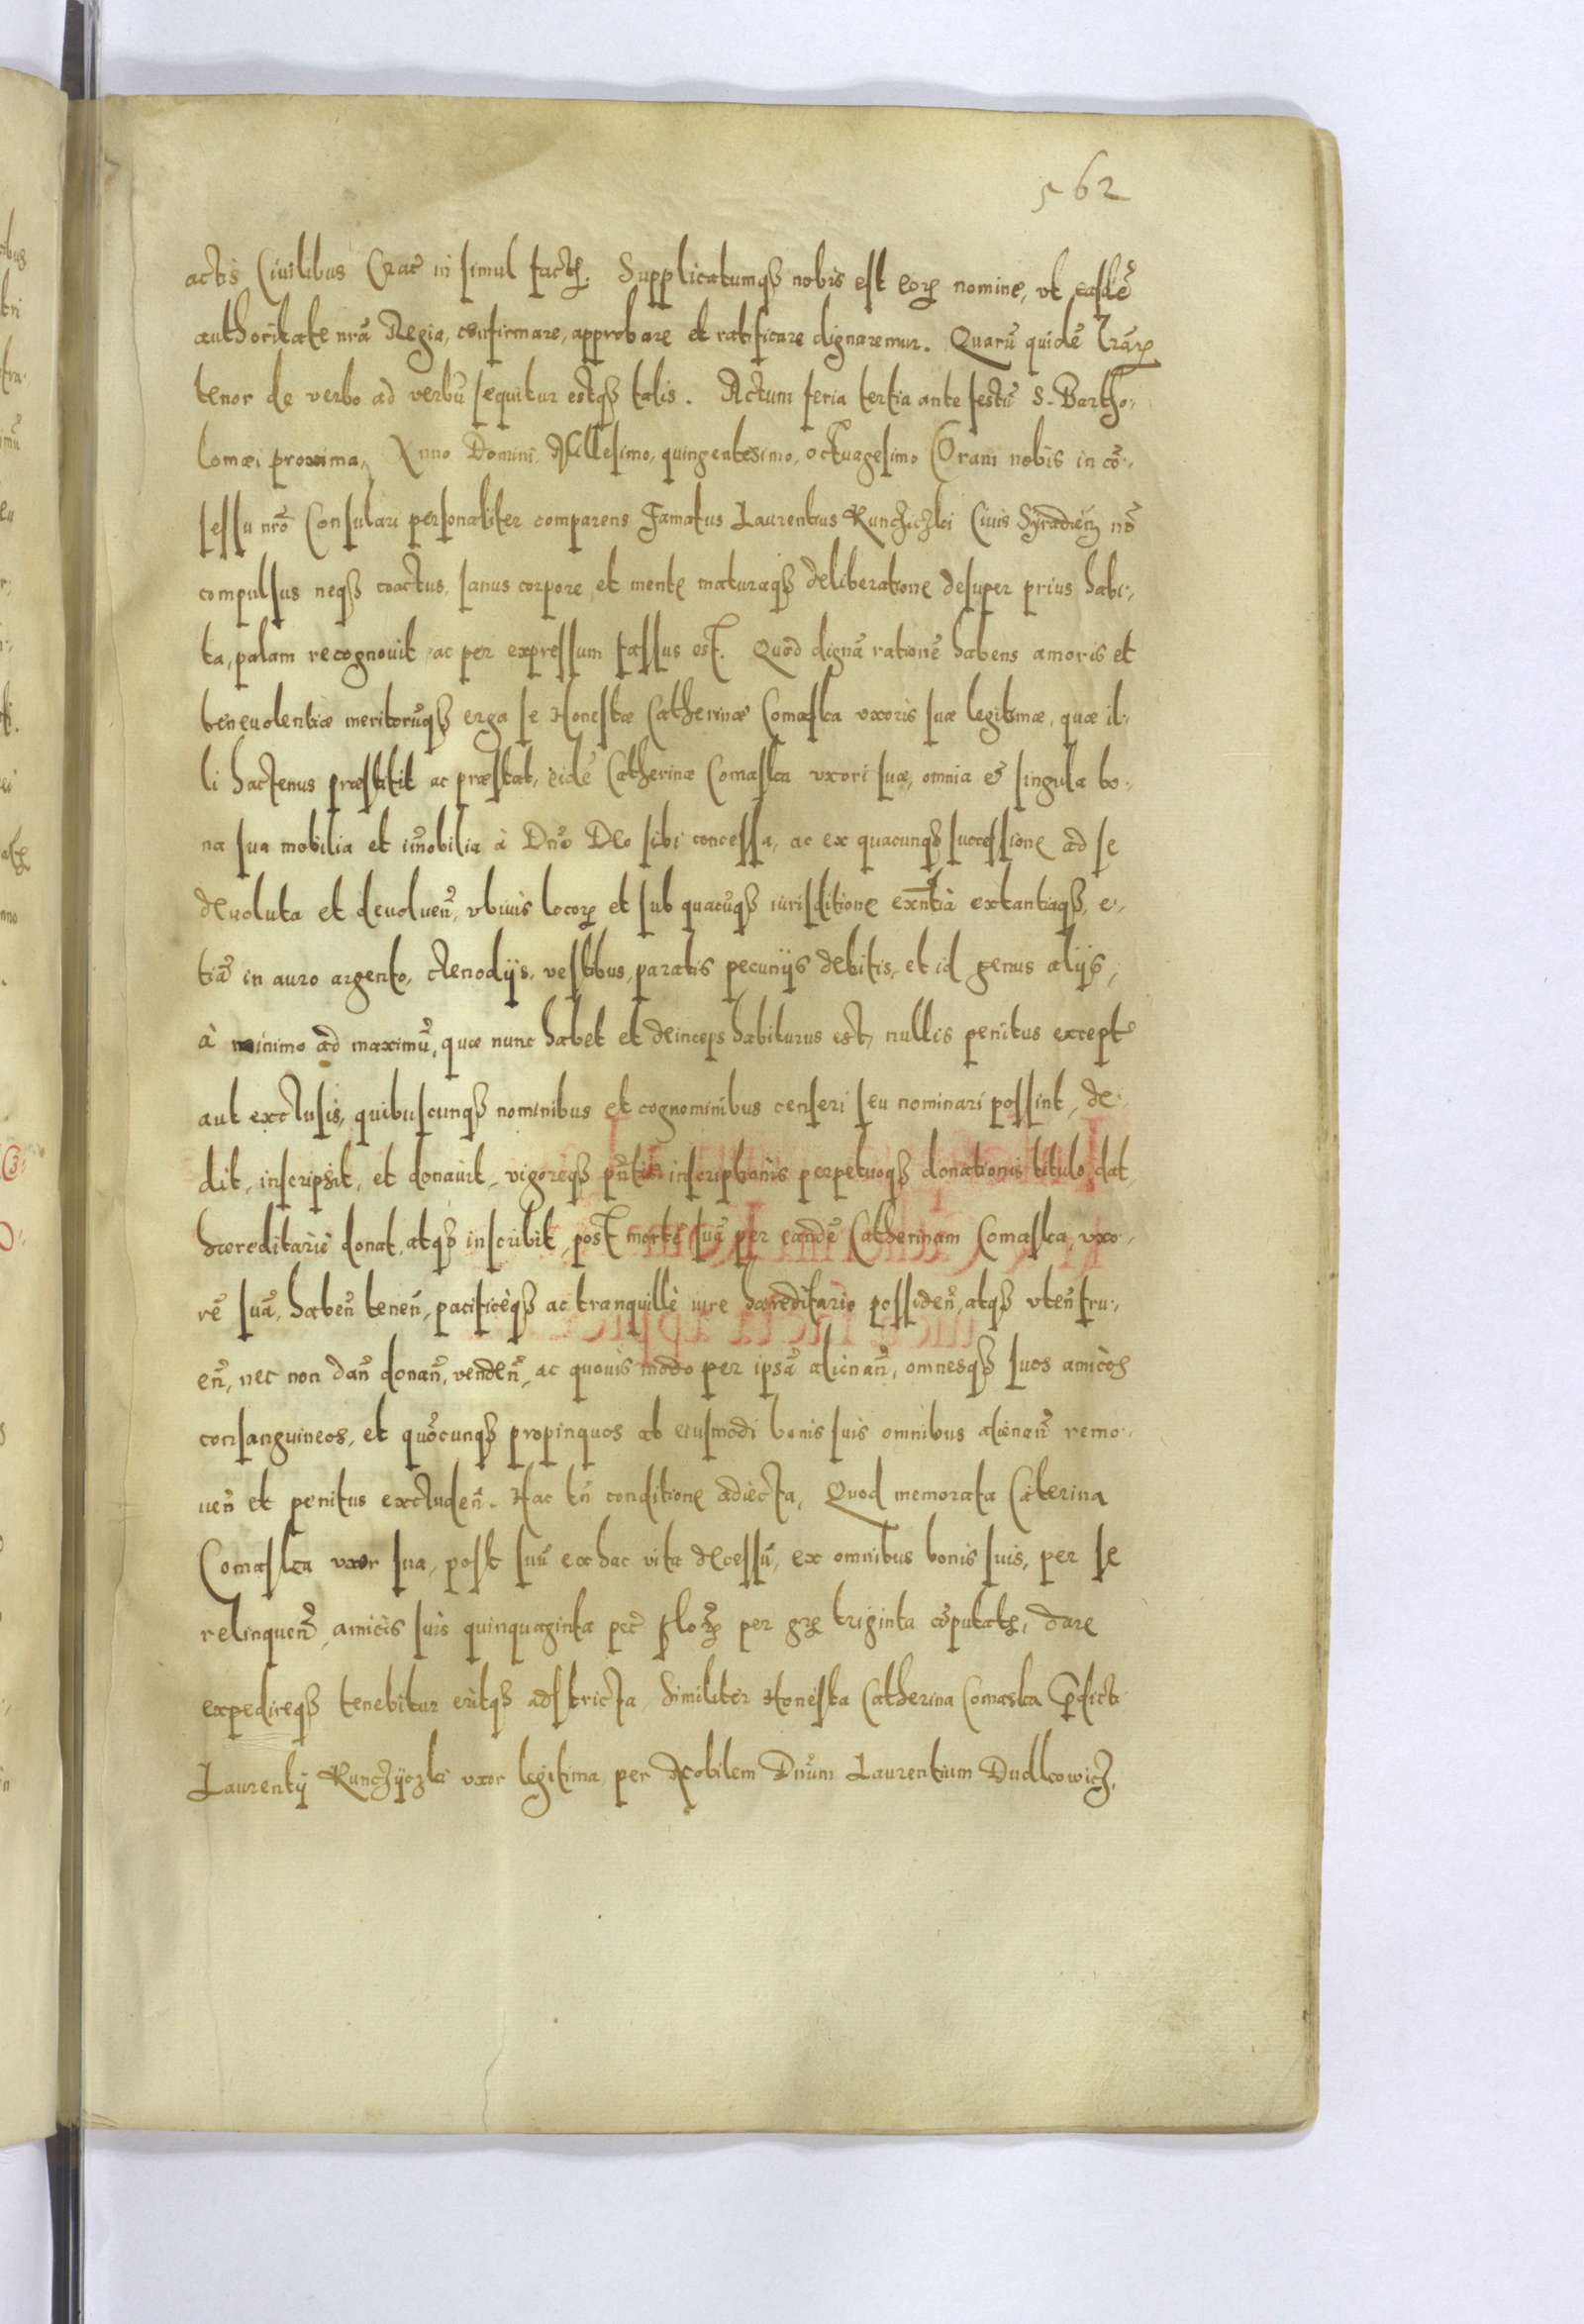 562
actis Ciuilibus Crac̃ in simul factꝝ. Supplicatumqꝫ nobis est eorꝝ nomine, vt easdẽ
authoritate nrã Regia, confirmare, approbare et ratificare dignaremur. Quarũ quidẽ lrãrꝝ
tenor de verbo ad verbũ sequitur estqꝫ talis. Actum feria tertia ante festũ S. Bartho-
lomæi proxima, Anno Domini Millesimo, quingentesimo, octuagesimo Coram nobis in cõ-
sessu nrõ Consulari personaliter comparens Famatus Laurentius Runchichki Ciuis Syradieñ nõ
compulsus neqꝫ coactus, sanus corpore et mente maturaqꝫ deliberatione desuper prius habi-
ta, palam recognouit ac per expressum fassus est. Quòd dignã rationẽ habens amoris et
beneuolentiæ meritorũqꝫ erga se Honestæ Catherinæ Comaska vxoris suæ legitimæ, quæ il-
li hactenus præstitit ac præstat, eidẽ Catherinæ Comaska vxori suæ, omnia et singula bo-
na sua mobilia et im̃obilia à Dño Deo sibi concessa, ac ex quacunqꝫ successione ad se
deuoluta et deuolueñ, vbiuis locorꝝ et sub quacũqꝫ iurisditione exñtia extantiaqꝫ, e-
tiã in auro argento, clenodijs, vestibus, paratis pecunijs debitis, et id genus alijs,
à minimo ad maximũ, quæ nunc habet et deinceps habiturus est, nullis penitus except̃
aut exclusis, quibuscunqꝫ nominibus et cognominibus censeri seu nominari possint, de-
dit, inscripsit, et donauit, vigoreqꝫ pñtis inscriptionis perpetuoqꝫ donationis titulo, dat
hæreditariè donat, atqꝫ inscribit, post mortẽ suã per eandẽ Catherinam Comaska, vxo-
rẽ suã, habeñ teneñ, pacificèqꝫ ac tranquillè iure hæreditario possideñ, atqꝫ vteñ fru-
eñ, nec non dañ donañ, vendeñ, ac quouis modo per ipsã alienañ, omnesqꝫ suos amicos
consanguineos, et quõcunqꝫ propinquos ab eiusmodi bonis suis omnibus alienañ remo-
ueñ et penitus excludeñ. Hac tñ conditione adiecta, Quod memorata Caterina
Comaska vxor sua, post suũ ex hac vita decessũ, ex omnibus bonis suis, per se
relinqueñ, amicis suis quinquaginta pec̃ floꝝ per grꝝ triginta cõputatꝝ, dare
expedireqꝫ tenebitur eritqꝫ adstricta. Similiter Honesta Catherina Comaska p̃dicti
Laurentij Runchyczki vxor legitima per Nobilem Dñum Laurentium Dudkowicz,